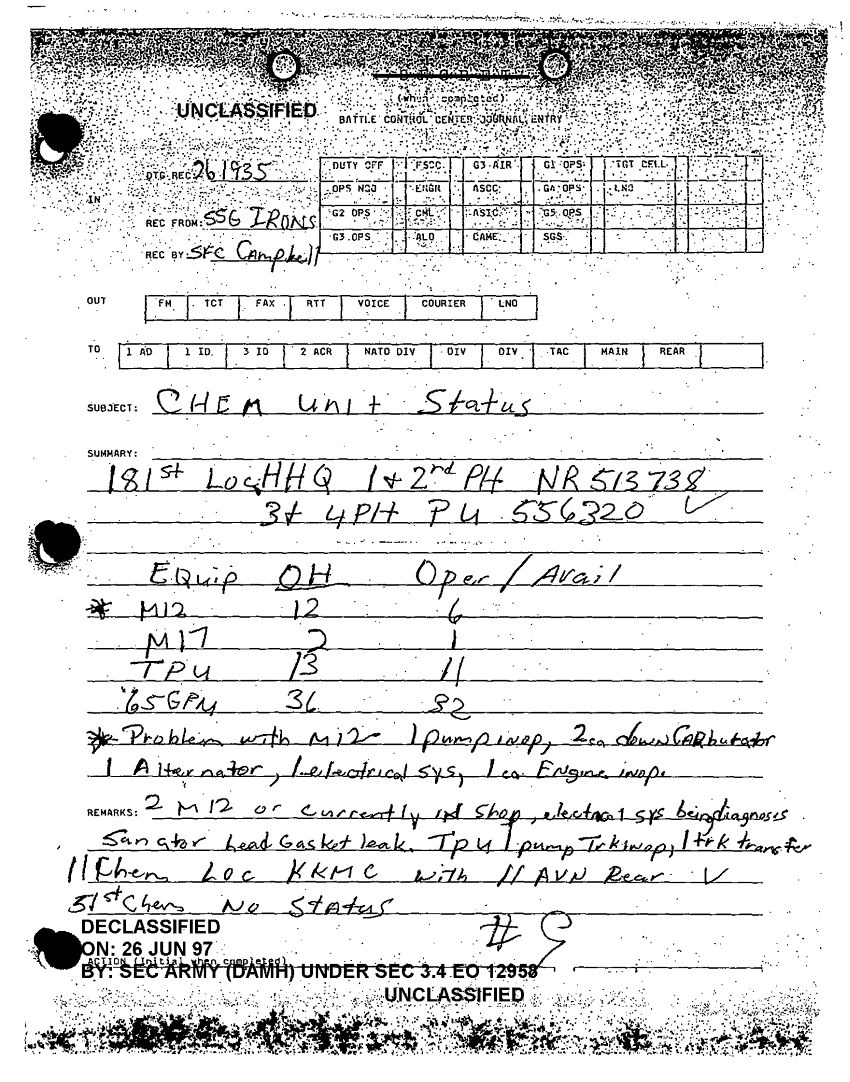 UNCLASSIFIED
(when completed)
BATTLE CONTROL CENTER JOURNAL ENTRY
IN
DTG REC: 261935
REC FROM: SSG IRONS
REC BY: SFC Campbell
DUTY OFF FSCC G3 AIR G1 OPS TGT CELL
OPS NCO ENGR ASCC G4 OPS LNO
G2 OPS CML ASIC G5 OPS
G3 OPS ALO CAME SGS
OUT FM TCT FAX RTT VOICE COURIER LNO
TO 1 AD 1 ID 3 ID 2 ACR NATO DIV DIV DIV TAC MAIN REAR
SUBJECT: CHEM Unit Status
SUMMARY:
181st Loc HHQ 1+2nd PH NR 513738
3+ 4PH PU 556320 ✓
EQuip OH Oper / Avail
* M12 12 6
M17 2 1
TPU 13 11
65GPM 36 32
* Problem with M12 - 1 pump inop, 2 ea down CARbutator
1 Alternator, 1 electrical sys, 1 ea Engine inop.
REMARKS: 2 M12 or currently in shop, electrical sys being diagnosis
San ator head Gasket leak. TPU 1 pump Trk inop, 1 trk transfer
11 Chem Loc KKMC with 11 AVN Rear ✓
51st Chem No Status
DECLASSIFIED
ON: 26 JUN 97
ACTION (Initial when completed)
BY: SEC ARMY (DAMH) UNDER SEC 3.4 EO 12958
#9
UNCLASSIFIED